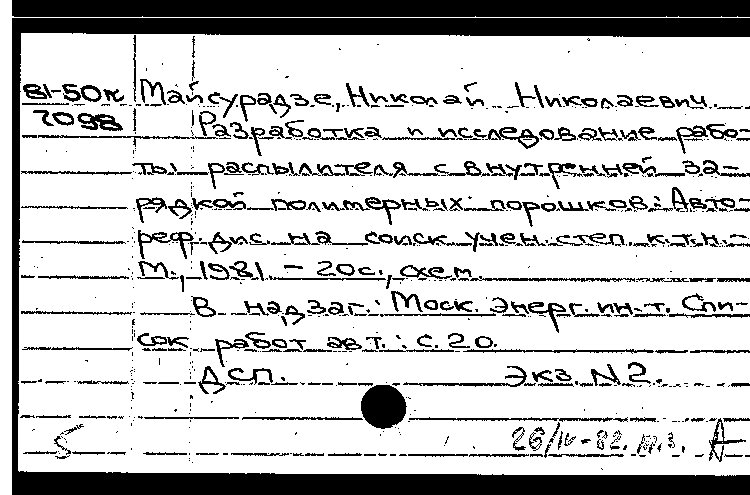 81-50к Майсурадзе, Николай Николаевич.
7098 Разработка и исследование рабо-
ты распылителя с внутренней за-
рядкой полимерных порошков: Авто-
реф. дис. на соиск. учен. степ. к.т.н. -
М., 1981. - 20с., схем.
В надзаг.: Моск. энерг. ин-т. Спи-
сок работ авт.: с. 20.
ДСП. Экз. N2.
5 26/IV-82. м.з. А